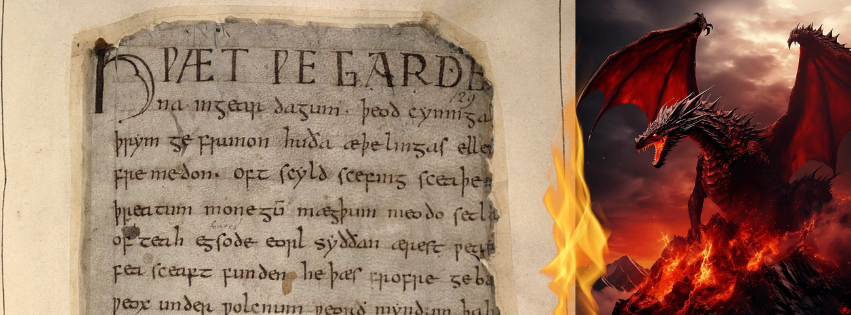 HǷÆT ǷE GARDE
129
na ingear dagum. þeod cyninga
þrym ge frunon huða æþelingas elle
fre medon. oft scyld scefing sceaþe
þreatum monegū mægþum meodo setla
of teah egsode eorl syððan ærest ƿea
fea sceaft funden he þæs frofre geba
ƿeox under ƿolcnum ƿeorð myndum þah